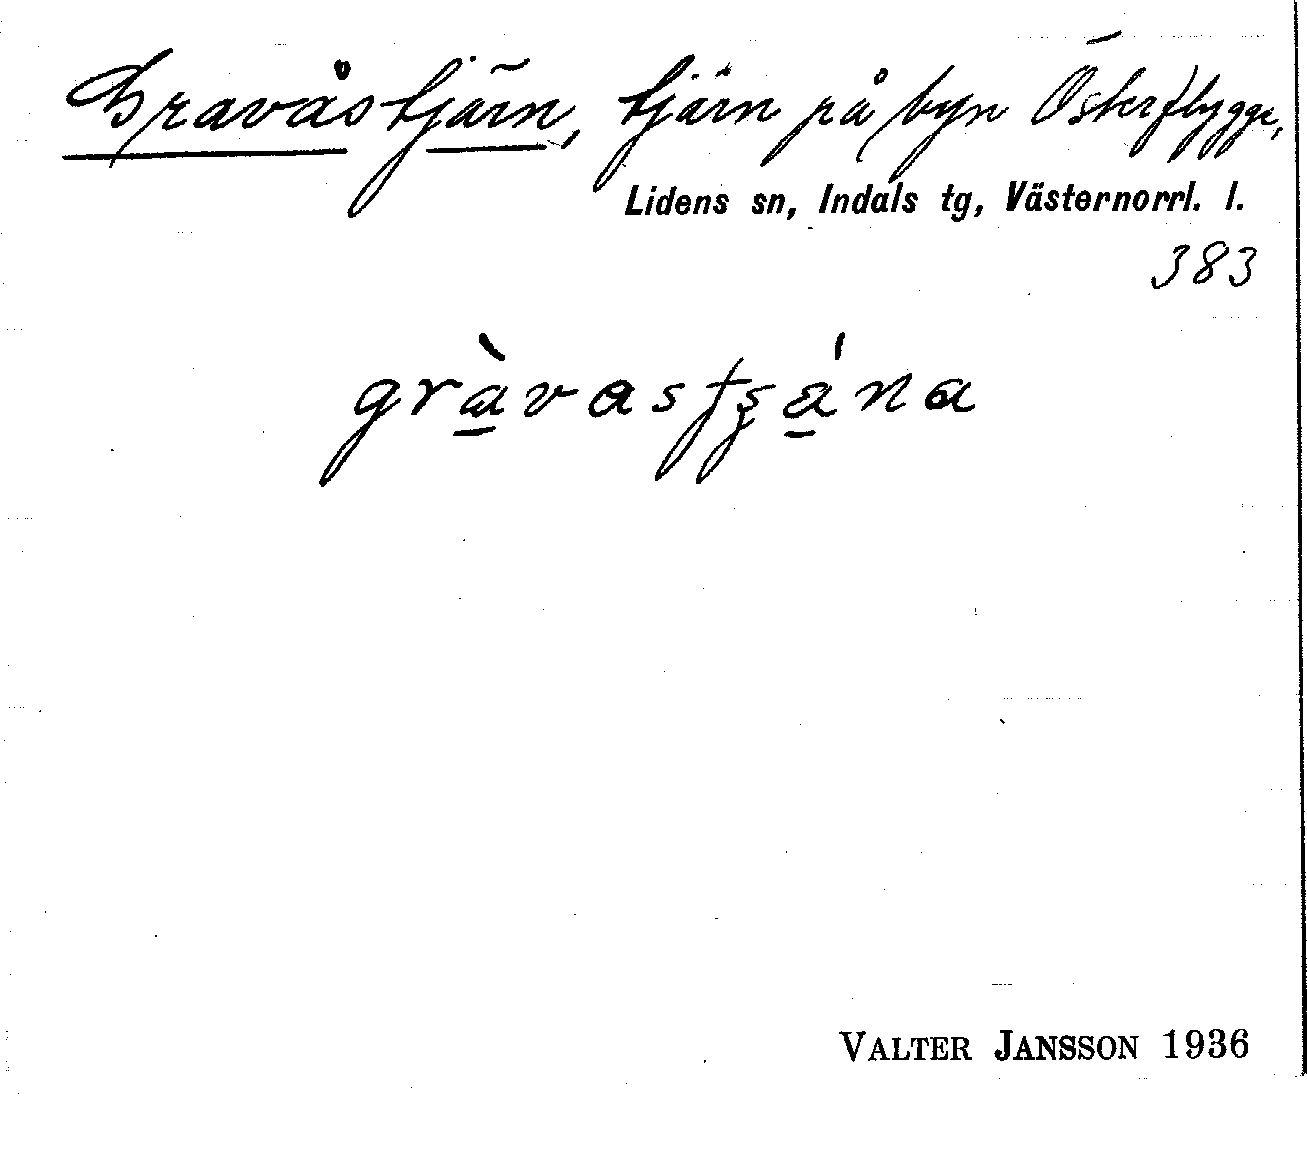 Gravåstjärn, tjärn på byn Österflygge,
Lidens sn, Indals tg, Västernorrl. l.
383
VALTER JANSSON 1936